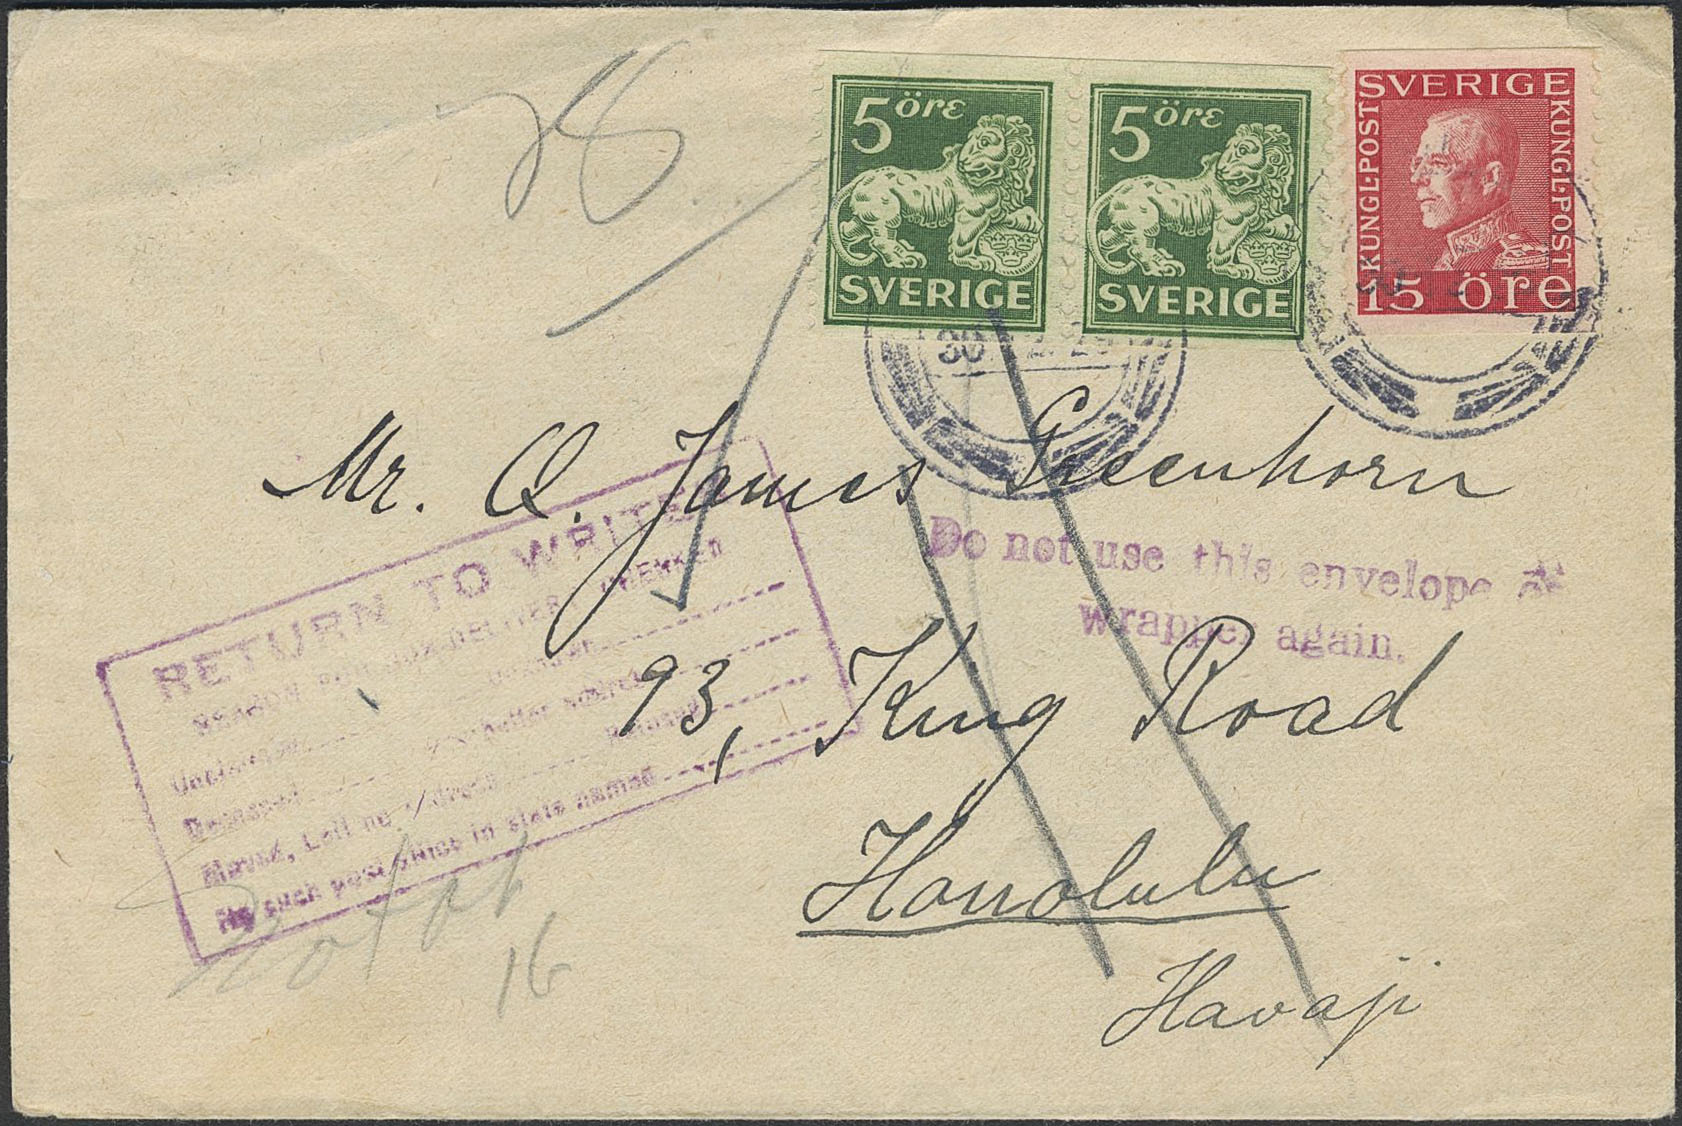 5 öre
SVERIGE
5 öre
SVERIGE
SVERIGE
KUNGL·POST
KUNGL·POST
15 öre
30
Mr. Q. James Greenhorn
Do not use this envelope or
wrapper again.
93, King Road
Honolulu
Havaji
RETURN TO WRITER
REASON FOR NON-DELIVERY CHECKED
Unclaimed
Deceased
Refused
Moved, Left no address
No such post office in state named
16